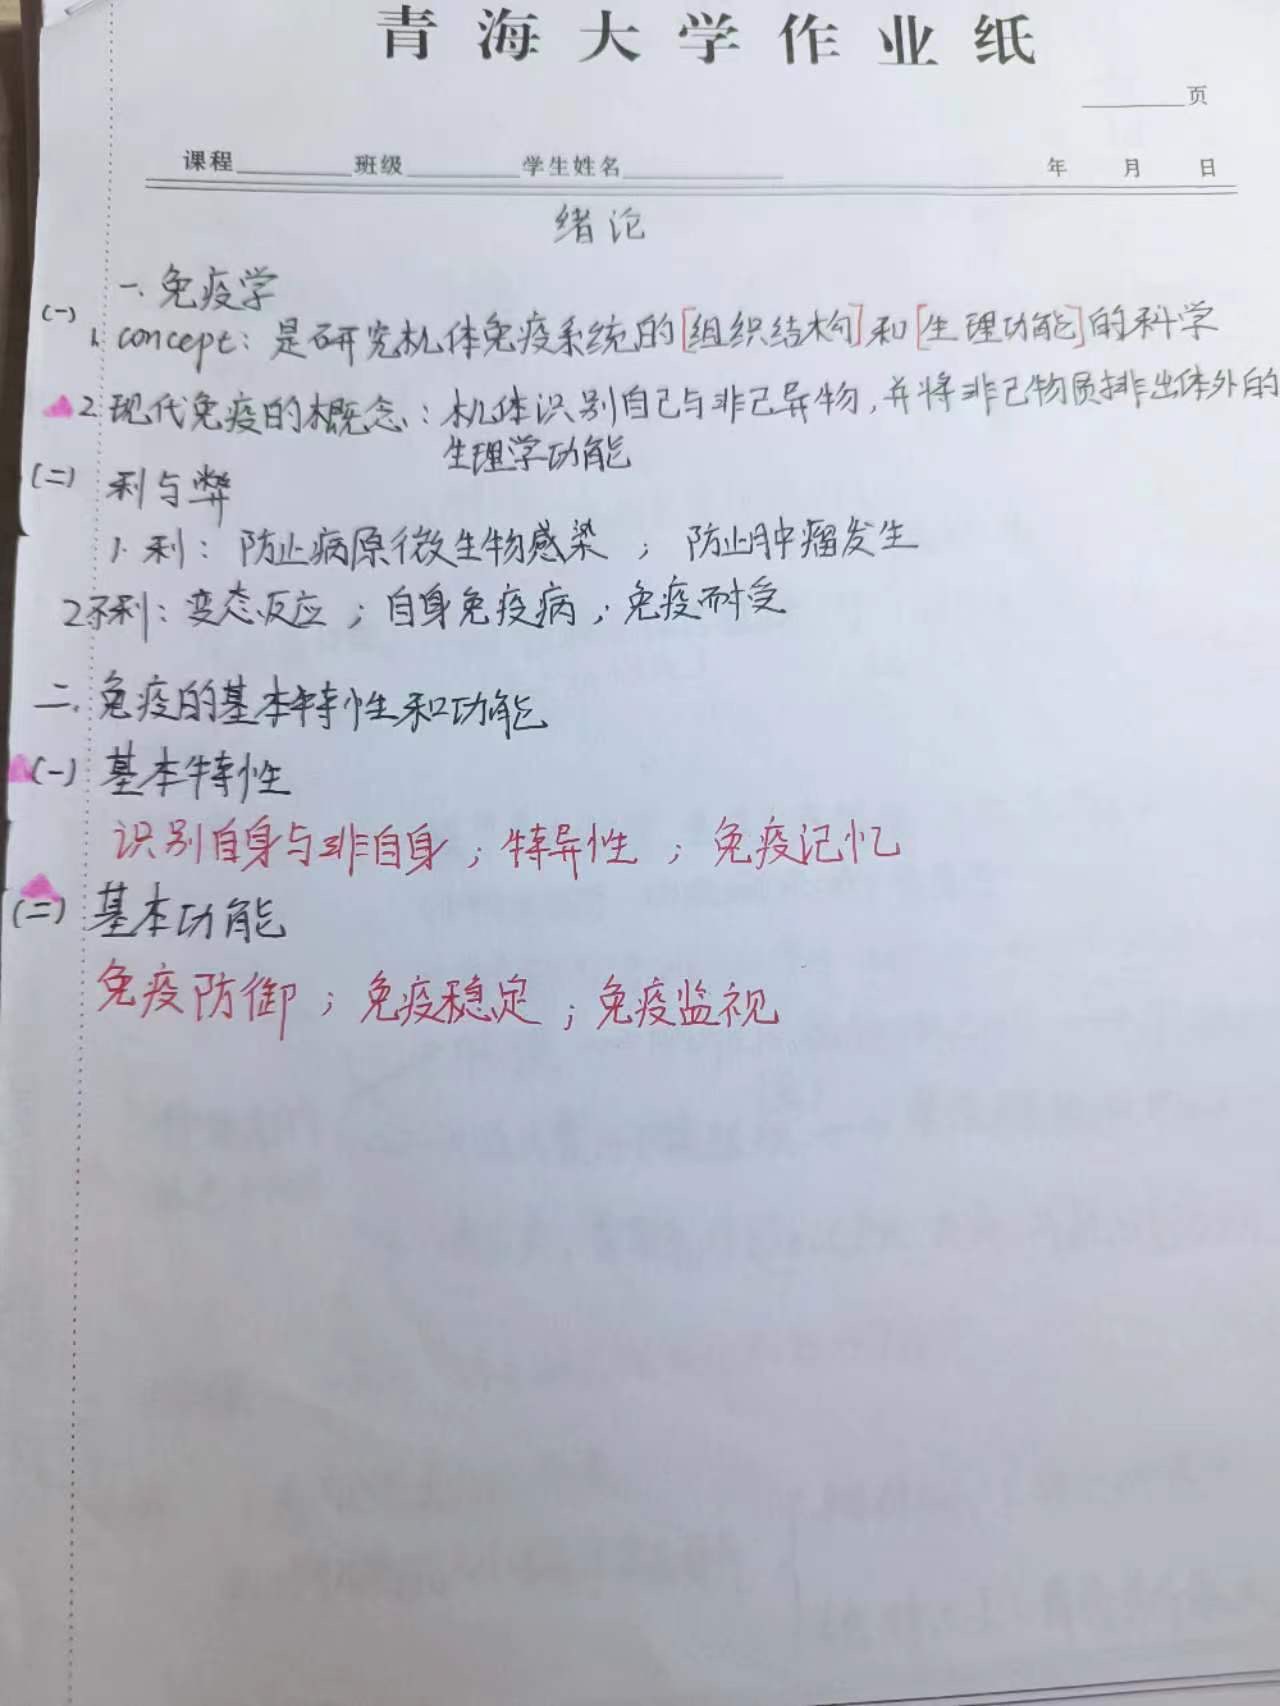 青海大学作业纸
页
课程 班级 学生姓名 年 月 日
绪论
一、免疫学
(一) 1. concept：是研究机体免疫系统的[组织结构]和[生理功能]的科学
2. 现代免疫的概念：机体识别自己与非己异物，并将非己物质排出体外的
生理学功能
(二) 利与弊
1. 利：防止病原微生物感染；防止肿瘤发生
2不利：变态反应；自身免疫病；免疫耐受
二、免疫的基本特性和功能
(一) 基本特性
识别自身与非自身；特异性；免疫记忆
(二) 基本功能
免疫防御；免疫稳定；免疫监视